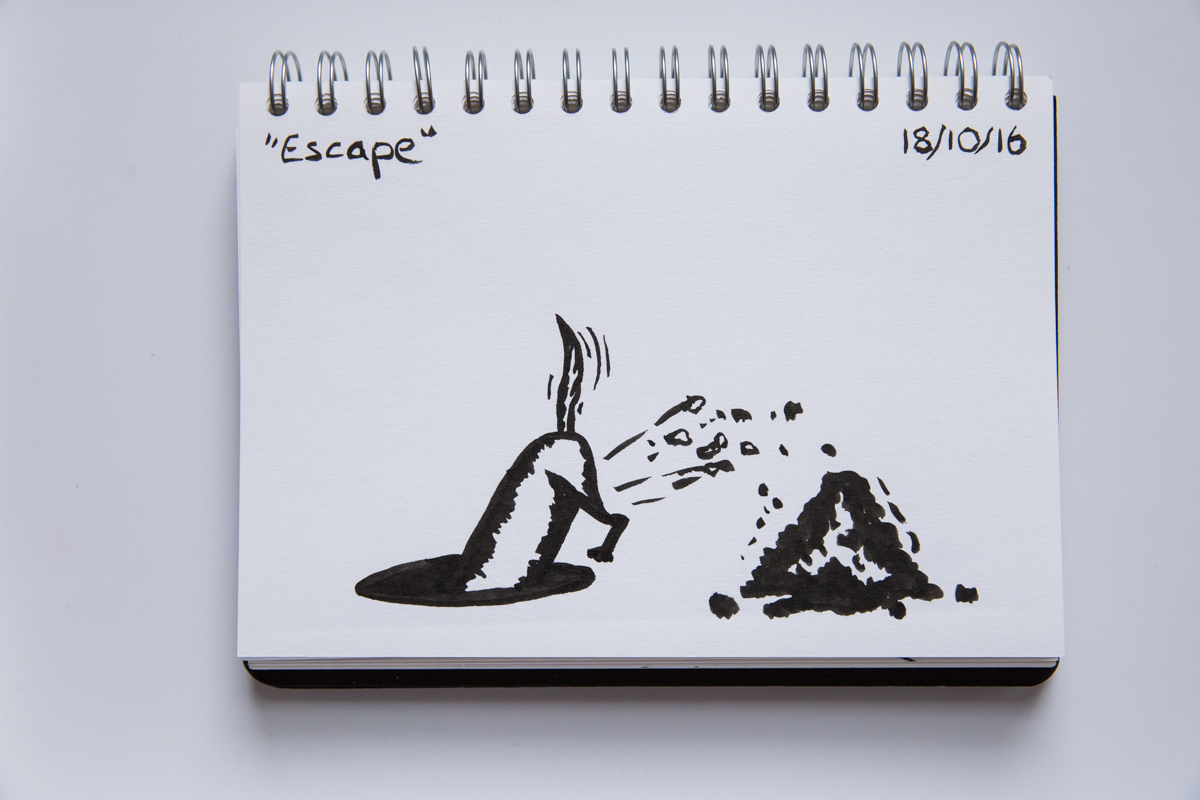 "Escape"
18/10/16